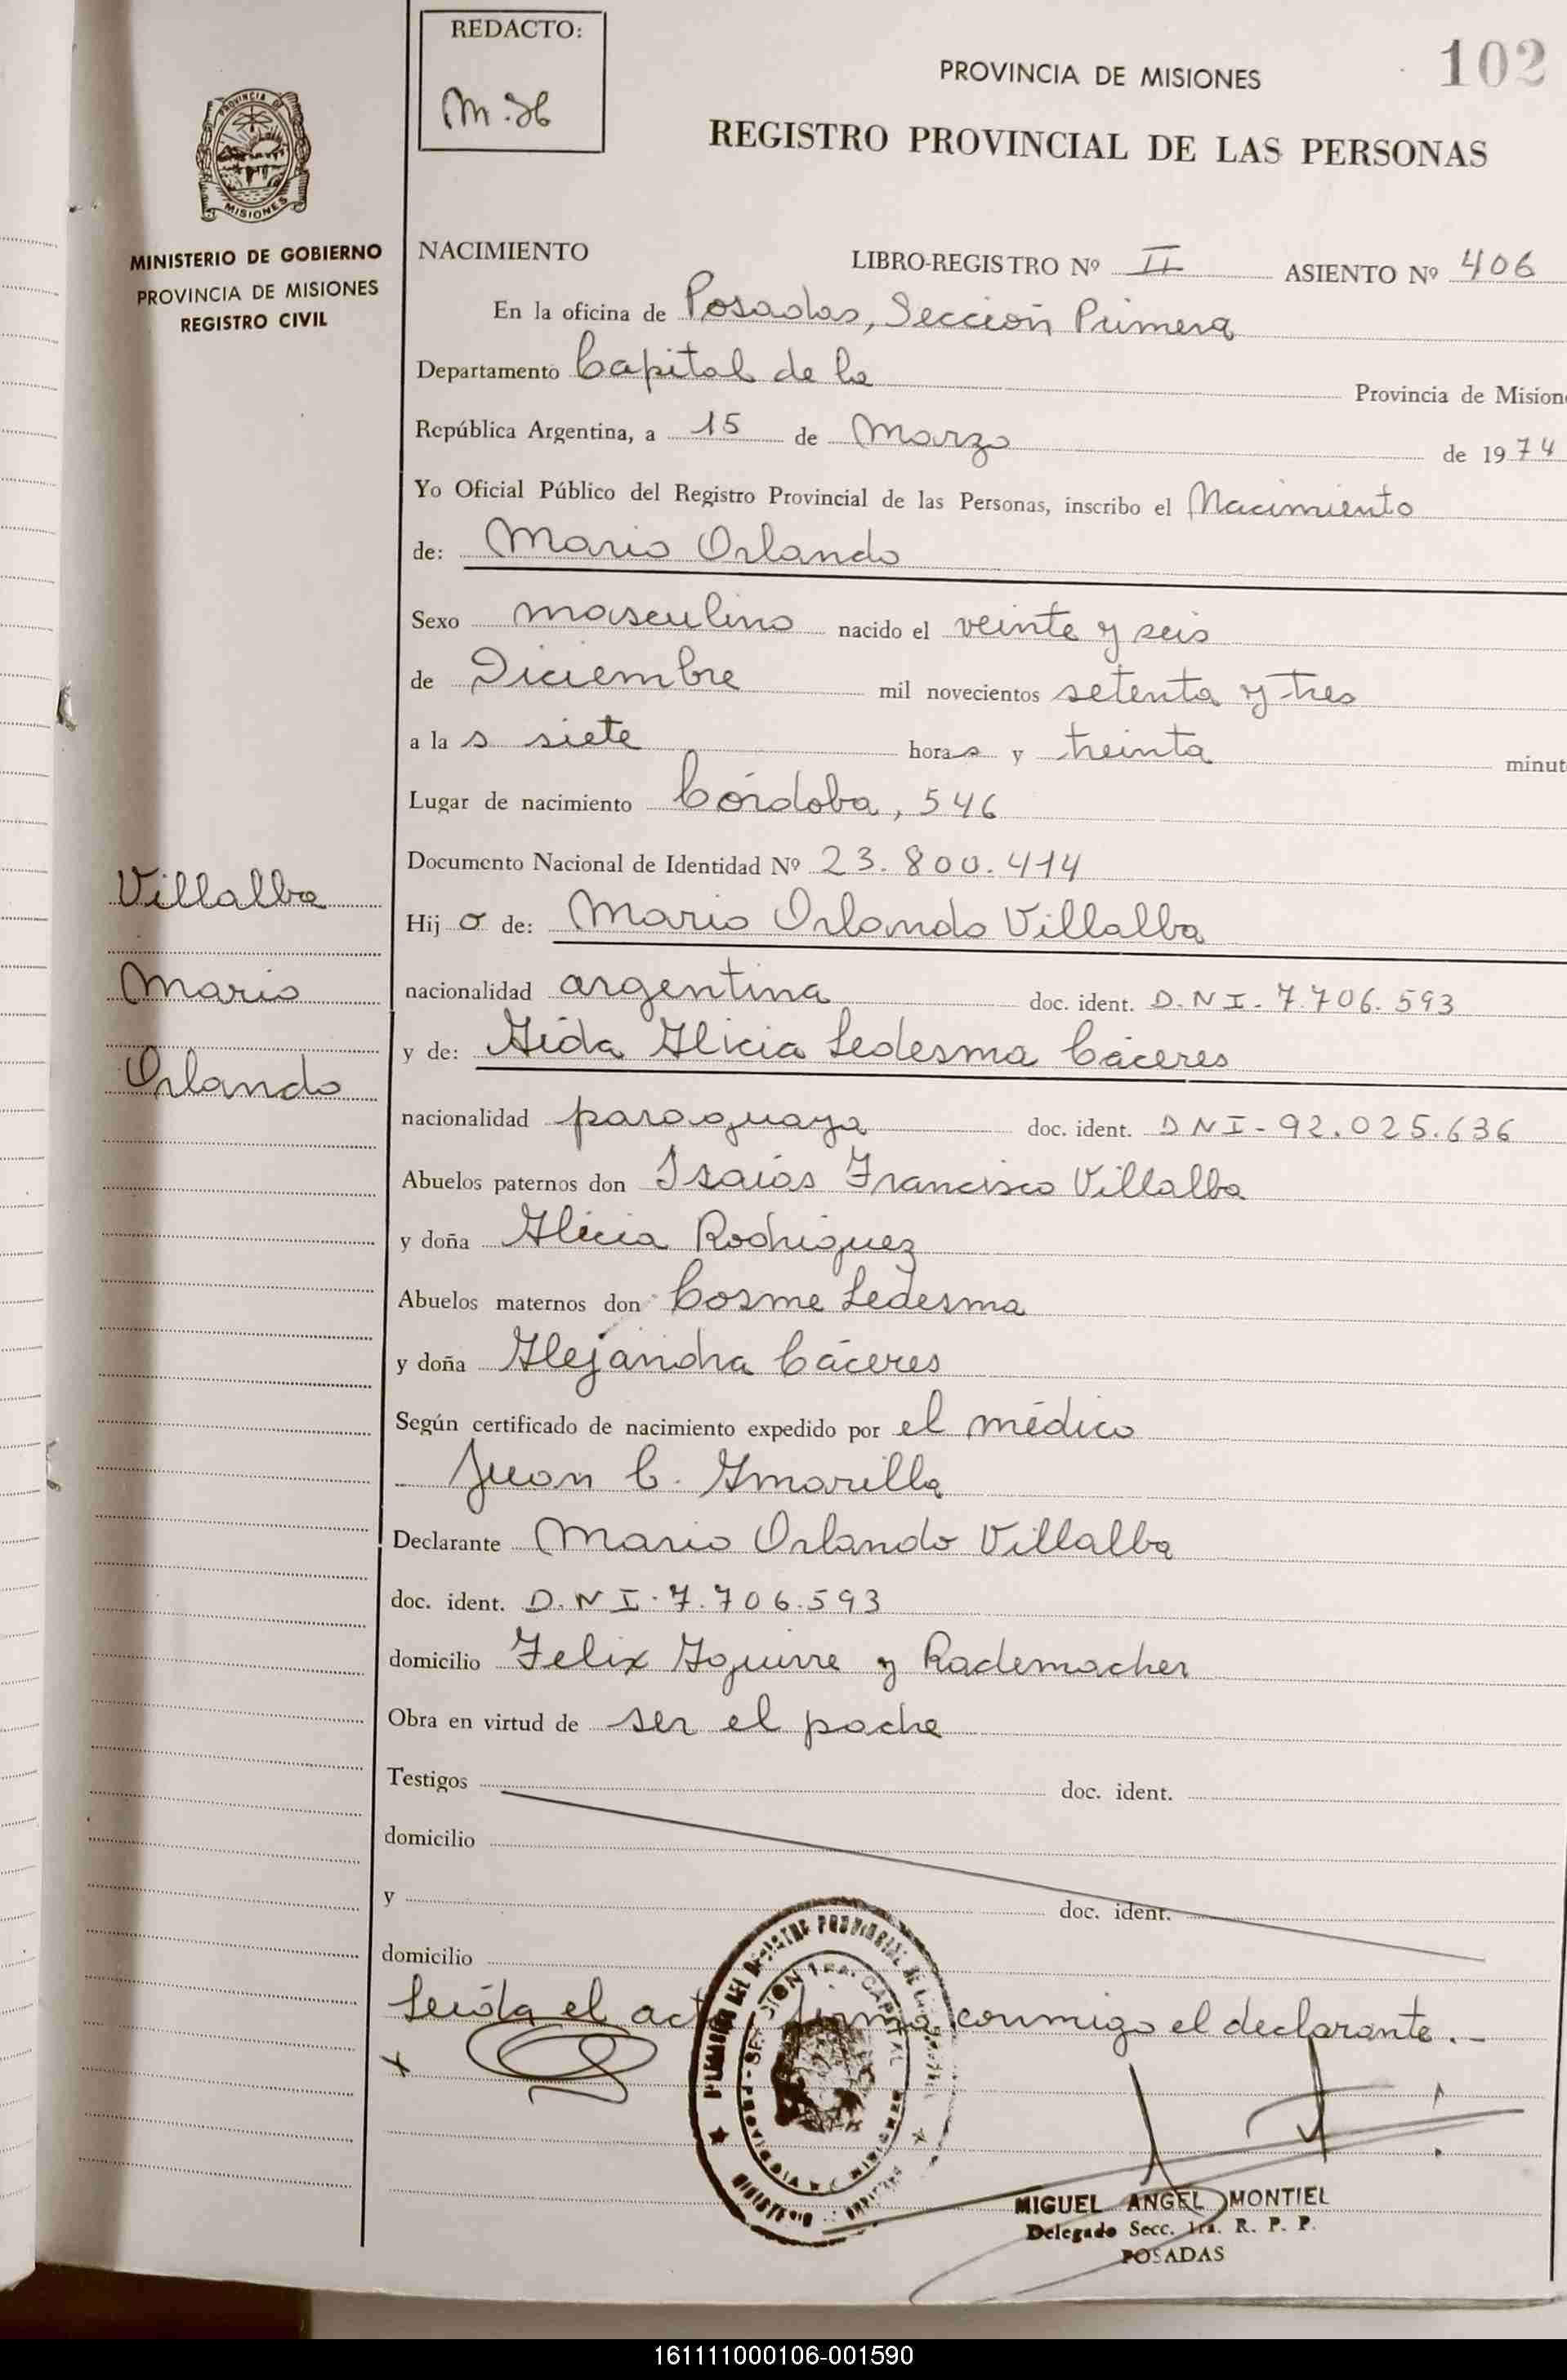 REDACTO:
M.H
PROVINCIA DE MISIONES
102
REGISTRO PROVINCIAL DE LAS PERSONAS
PROVINCIA DE
MISIONES
MINISTERIO DE GOBIERNO
PROVINCIA DE MISIONES
REGISTRO CIVIL
NACIMIENTO LIBRO-REGISTRO Nº II ASIENTO Nº 406
En la oficina de Posadas, Sección Primera
Departamento Capital de la Provincia de Mision
República Argentina, a 15 de Marzo de 1974
Yo Oficial Público del Registro Provincial de las Personas, inscribo el Nacimiento
de: Mario Orlando
Sexo masculino nacido el veinte y seis
de Diciembre mil novecientos setenta y tres
a la s siete horas y treinta minut
Lugar de nacimiento Córdoba, 546
Documento Nacional de Identidad Nº 23.800.414
Villalba
Mario
Orlando
Hij o de: Mario Orlando Villalba
nacionalidad argentina doc. ident. D.N.I. 7.706.593
y de: Aida Alicia Ledesma Cáceres
nacionalidad paraguaya doc. ident. DNI-92.025.636
Abuelos paternos don Isaías Francisco Villalba
y doña Alicia Rodriguez
Abuelos maternos don Cosme Ledesma
y doña Alejandra Cáceres
Según certificado de nacimiento expedido por el médico
Juan C. Amarilla
Declarante Mario Orlando Villalba
doc. ident. D.N.I. 7.706.593
domicilio Felix Aguirre y Rademacher
Obra en virtud de ser el padre
Testigos doc. ident.
domicilio
y doc. ident.
domicilio
Leída el acta firma conmigo el declarante.-
MIGUEL ANGEL MONTIEL
Delegado Secc. 1ra. R. P. P.
POSADAS
161111000106-001590